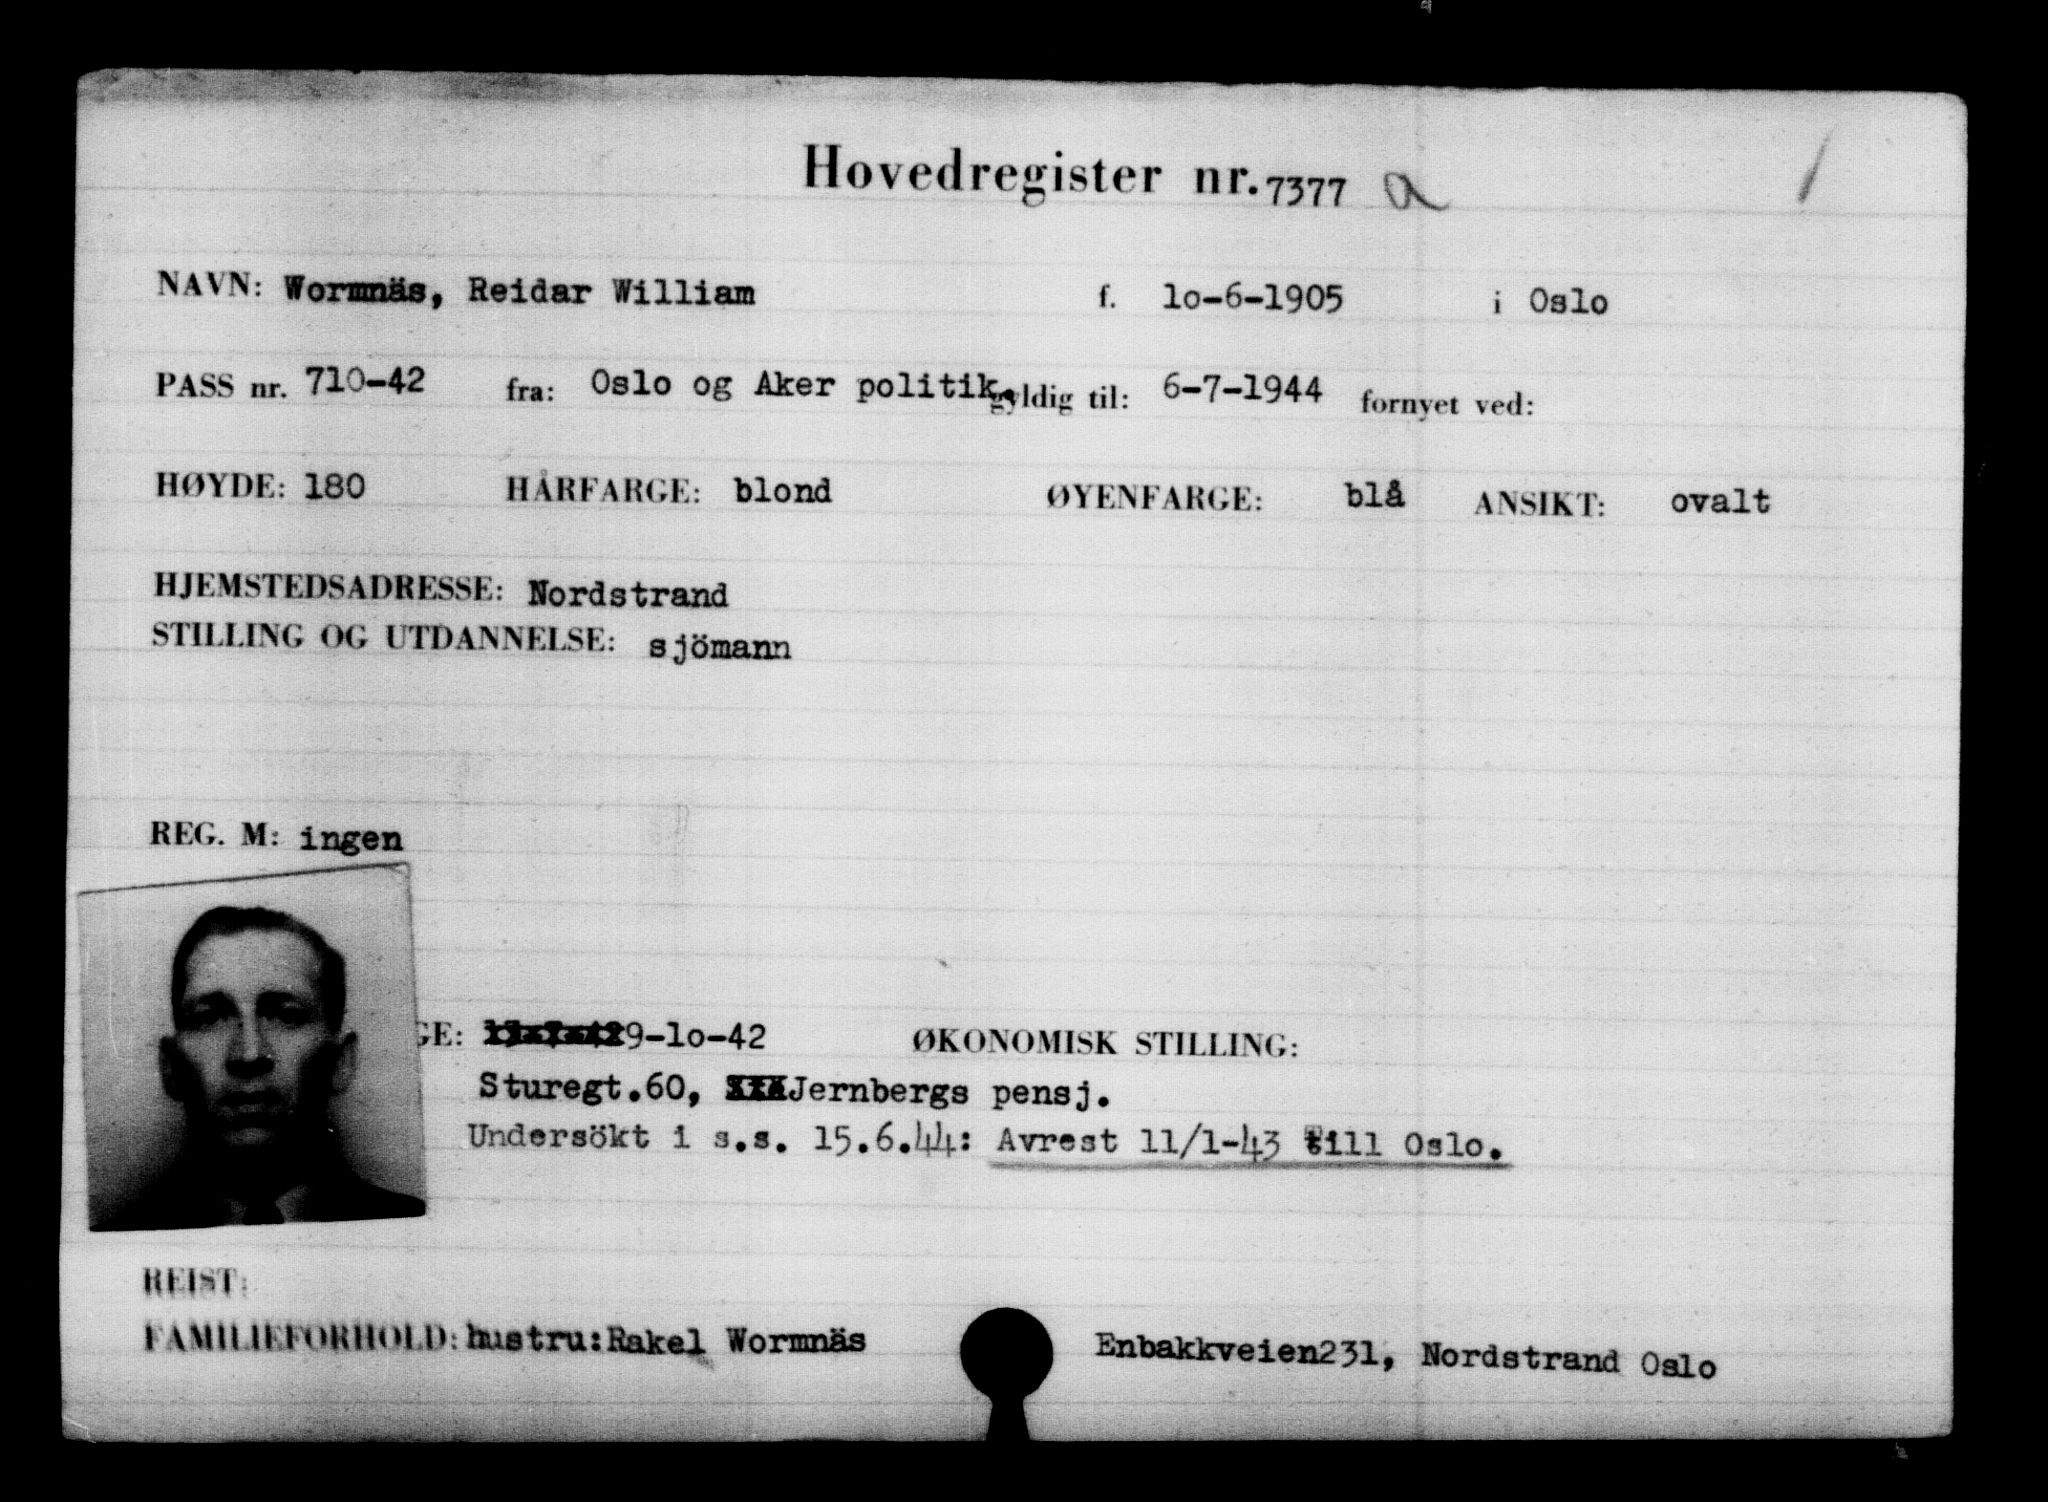 Hovedregister nr. 7377 a /
NAVN: Wormnäs, Reidar William f. lo-6-1905 i Oslo
PASS nr. 710-42 fra: Oslo og Aker politik. gyldig til: 6-7-1944 fornyet ved:
HØYDE: 180 HÅRFARGE: blond ØYENFARGE: blå ANSIKT: ovalt
HJEMSTEDSADRESSE: Nordstrand
STILLING OG UTDANNELSE: sjömann
REG. M: ingen
GE: 9-lo-42 ØKONOMISK STILLING:
Sturegt.60, Jernbergs pensj.
Undersökt i s.s. 15.6.44: Avrest 11/1-43 till Oslo.
REIST:
FAMILIEFORHOLD: hustru:Rakel Wormnäs Enbakkveien231, Nordstrand Oslo